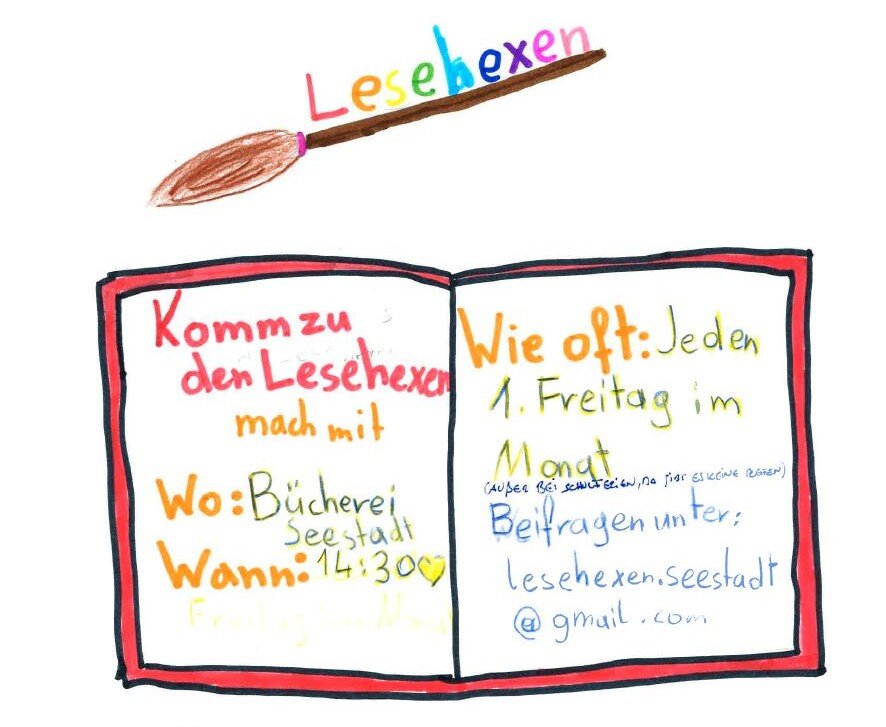 Lesehexen
Komm zu
den Lesehexen
mach mit
Wo: Bücherei
Seestadt
Wann: 14:30
Freitag im Monat
Wie oft: Jeden
1. Freitag im
Monat
(AUßER BEI SCHULFERIEN, DA GIBT ES KEINE)
Bei fragen unter:
lesehexen.seestadt
@gmail.com